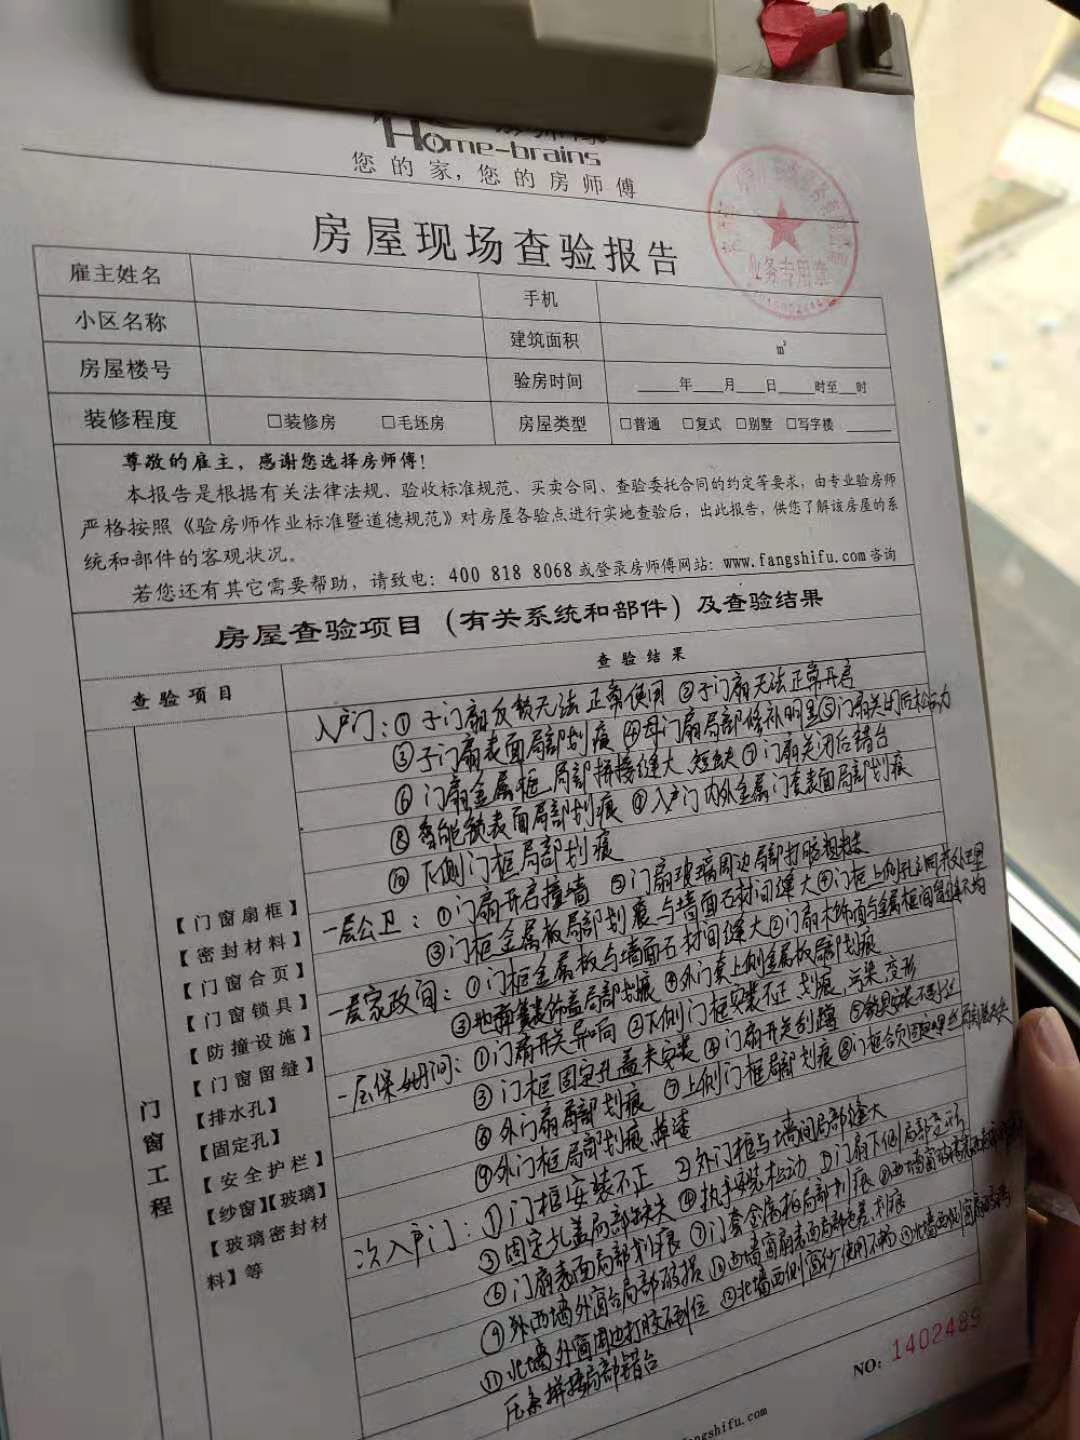 Home-brains
您的家,您的房师傅
房屋现场查验报告
业务专用章
雇主姓名 手机
小区名称 建筑面积 ㎡
房屋楼号 验房时间 ____年____月____日____时至__时
装修程度 □装修房 □毛坯房 房屋类型 □普通 □复式 □别墅 □写字楼 ____
尊敬的雇主，感谢您选择房师傅!
本报告是根据有关法律法规、验收标准规范、买卖合同、查验委托合同的约定等要求，由专业验房师
严格按照《验房师作业标准暨道德规范》对房屋各验点进行实地查验后，出此报告，供您了解该房屋的系
统和部件的客观状况。
若您还有其它需要帮助，请致电：400 818 8068 或登录房师傅网站：www.fangshifu.com 咨询
房屋查验项目（有关系统和部件）及查验结果
查验项目 查验结果
门窗工程
【门窗扇框】
【密封材料】
【门窗合页】
【门窗锁具】
【防撞设施】
【门窗留缝】
【排水孔】
【固定孔】
【安全护栏】
【纱窗】【玻璃】
【玻璃密封材
料】等
入户门：①子门扇反锁无法正常使用 ②子门扇无法正常开启
③子门扇表面局部划痕 ④母门扇局部修补明显 ⑤门扇关闭后松动
⑥门扇金属框局部拼接缝大、短缺 ⑦门扇关闭后错台
⑧智能锁表面局部划痕 ⑨入户门内外金属门套表面局部划痕
⑩下侧门框局部划痕
一层公卫：①门扇开启撞墙 ②门扇玻璃周边局部打胶粗糙
③门框金属板局部划痕与墙面石材间缝大 ④门框上侧孔洞
一层家政间：①门框金属板与墙面石材间缝大 ②门扇木饰面与金属框间留缝不均
③地弹簧装饰盖局部划痕 ④外门套上侧金属板局部划痕
一层保姆间：①门扇开关异响 ②下侧门框安装不正、划痕、污染、变形
③门框固定孔盖未安装 ④门扇开关刮蹭 ⑤锁具安装不到位
⑥外门扇局部划痕 ⑦上侧门框局部划痕 ⑧门框合页固定螺丝
⑨外门框局部划痕、掉漆
次入户门：①门框安装不正 ②外门框与墙间局部缝大
③固定孔盖局部缺失 ④执手安装松动 ⑤门扇下侧局部变形
⑥门扇表面局部划痕 ⑦门套金属板局部划痕
⑨外西墙外窗台局部破损 ⑩西墙窗扇表面局部色差、划痕
⑪北墙外窗周边打胶不到位 ⑫北墙西侧窗纱使用不畅
压条拼接局部错台
NO: 1402489
fangshifu.com